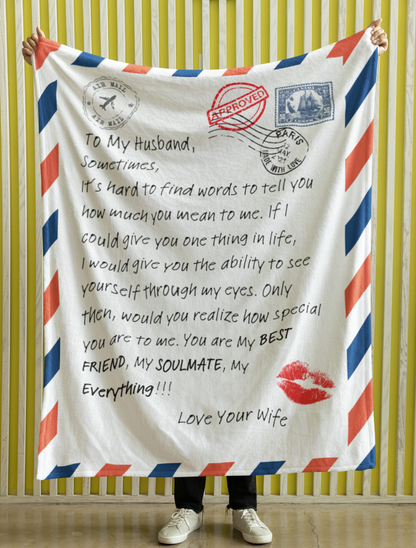 AIR MAIL
APPROVED
PARIS
MADE WITH LOVE
To My Husband,
Sometimes,
It's hard to find words to tell you
how much you mean to me. If I
could give you one thing in life,
I would give you the ability to see
yourself through my eyes. Only
then, would you realize how special
you are to me. You are My BEST
FRIEND, My SOULMATE, My
Everything!!!
Love Your Wife